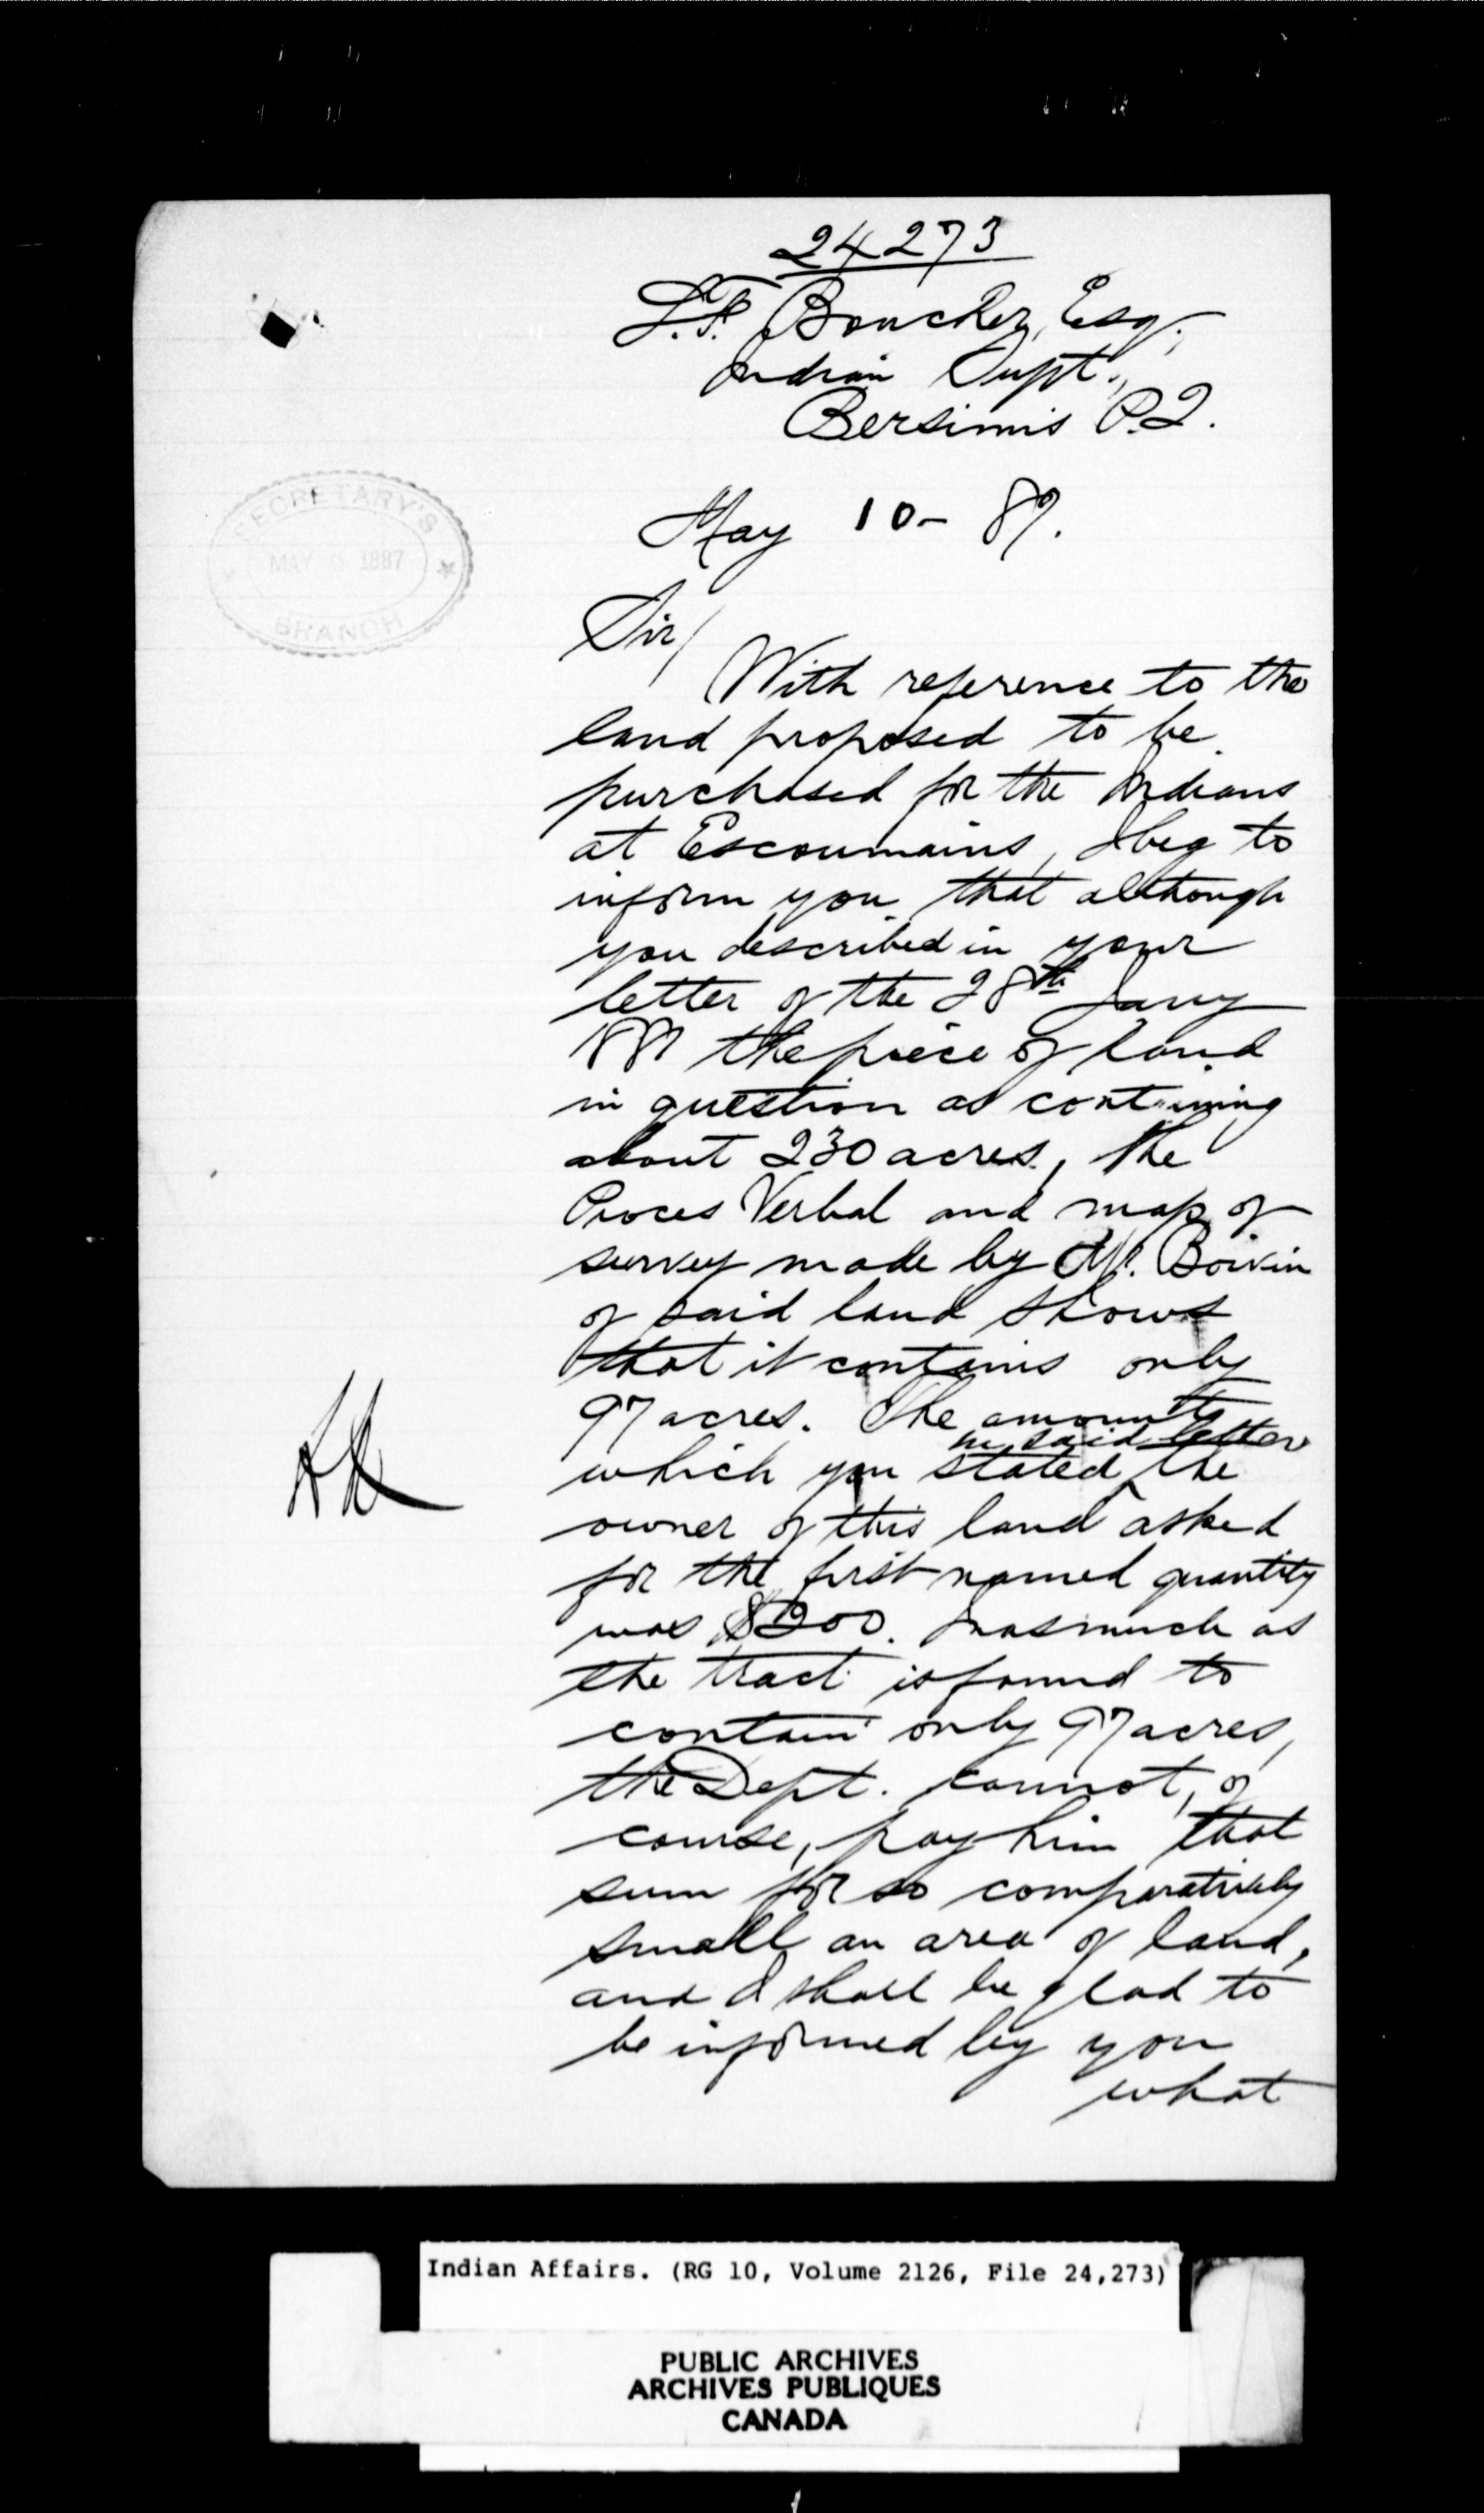 24273
L.F. Boucher, Esq.,
Indian Supt.,
Bersimis P.Q.
SECRETARY'S
MAY 1887
BRANCH
May 10 - 87.
Sir/
With reference to the
land proposed to be
purchased for the Indians
at Escoumains, I beg to
inform you that although
you described in your
letter of the 28th Jany
the piece of land
in question as containing
about 230 acres, the
Proces Verbal and map of
survey made by Mr. Boivin
of said land shows
that it contains only
97 acres. The amount
in said letter
which you stated the
owner of this land asked
for the first named quantity
was $200. Inasmuch as
the tract is found to
contain only 97 acres,
the Dept. cannot, of
course, pay him that
sum for so comparatively
small an area of land,
and I shall be glad to
be informed by you
what
Indian Affairs. (RG 10, Volume 2126, File 24,273)
PUBLIC ARCHIVES
ARCHIVES PUBLIQUES
CANADA